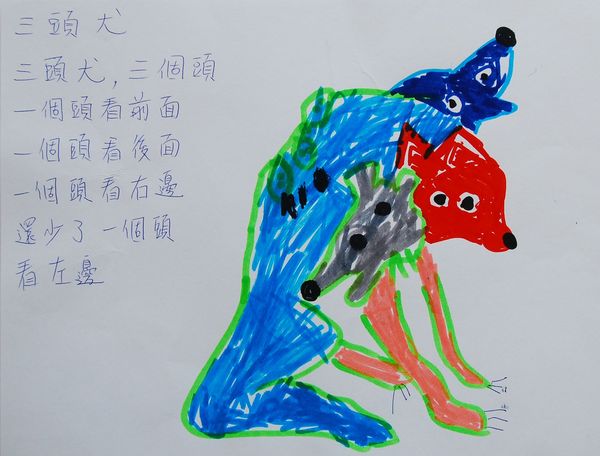 三頭犬
三頭犬,三個頭
一個頭看前面
一個頭看後面
一個頭看右邊
還少了一個頭
看左邊